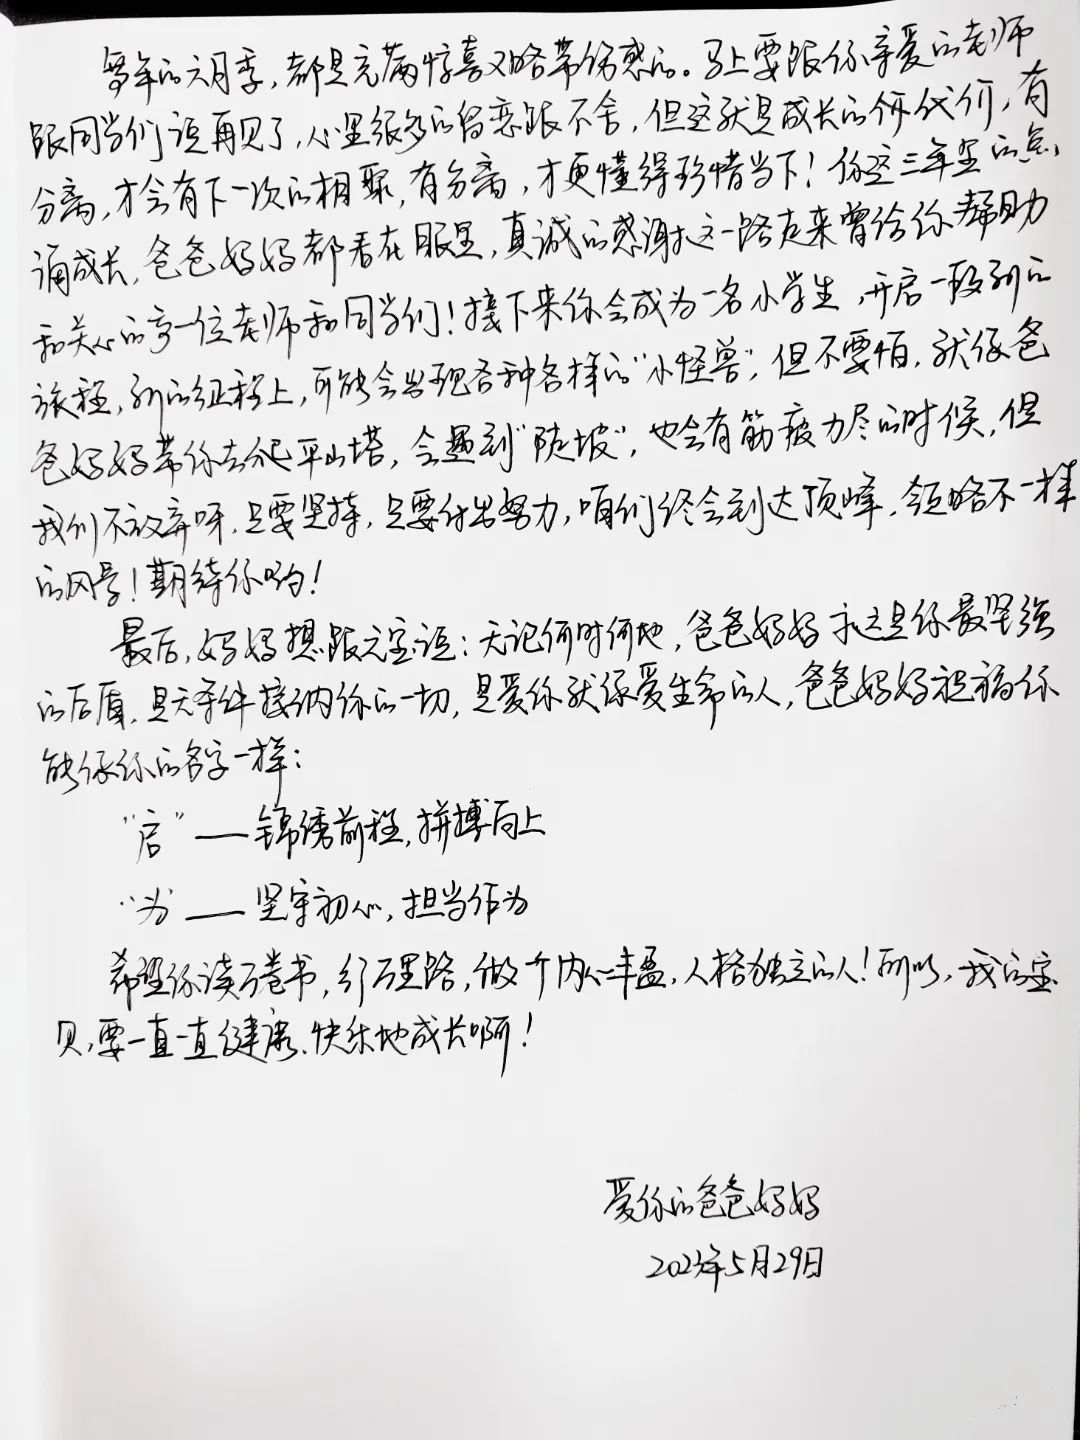 每年的六月季，都是充满惊喜又略带伤感的。马上要跟你亲爱的老师
跟同学们说再见了，心里很多的留恋跟不舍，但这就是成长的代价，有
分离，才会有下一次的相聚，有分离，才更懂得珍惜当下！你这三年里的点
滴成长，爸爸妈妈都看在眼里，真诚的感谢这一路走来曾给你帮助
和关心的每一位老师和同学们！接下来你会成为一名小学生，开启一段新的
旅程，新的征程上，可能会出现各种各样的“小怪兽”，但不要怕，就像爸
爸妈妈带你去爬平山塔，会遇到“陡坡”，也会有筋疲力尽的时候，但
我们不放弃呀，只要坚持，只要付出努力，咱们终会到达顶峰，领略不一样
的风景！期待你哟！
最后，妈妈想跟元宝说：无论何时何地，爸爸妈妈永远是你最坚强
的后盾，是无条件接纳你的一切，是爱你就像爱生命的人，爸爸妈妈祝福你
能像你的名字一样：
“启”——锦绣前程，拼搏向上
“为”——坚守初心，担当作为
希望你读万卷书，行万里路，做个内心丰盈，人格独立的人！所以，我的宝
贝，要一直一直健康、快乐地成长啊！
爱你的爸爸妈妈
2023年5月29日